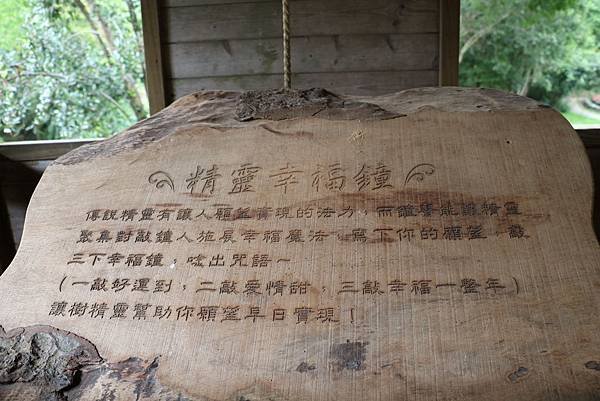 精靈幸福鐘
傳說精靈有讓人願望實現的法力，而鐘聲能讓精靈
聚集對敲鐘人施展幸福魔法，寫下你的願望，敲
三下幸福鐘，唸出咒語~
(一敲好運到，二敲愛情甜，三敲幸福一整年)
讓樹精靈幫助你願望早日實現！